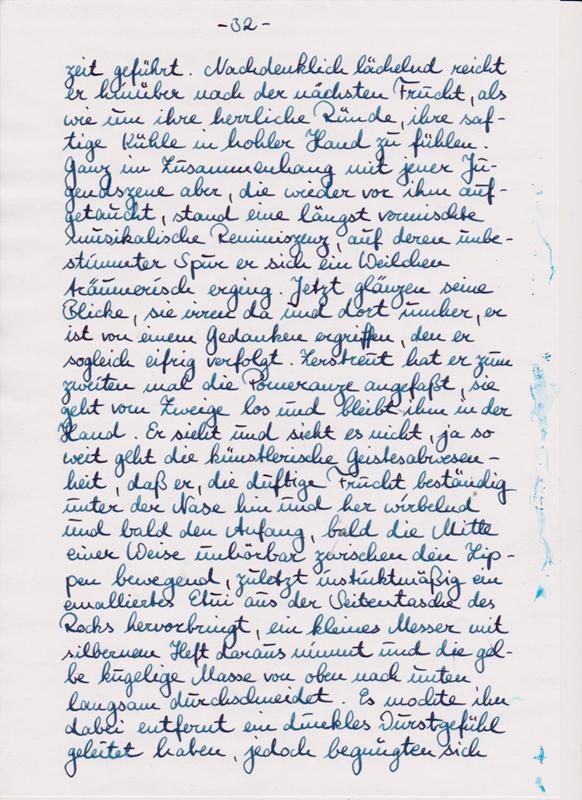 -32-
zeit geführt. Nachdenklich lächelnd reicht
er hinüber nach der nächsten Frucht, als
wie um ihre herrliche Ründe, ihre saf-
tige Kühle in hohler Hand zu fühlen.
Ganz im Zusammenhang mit jener Ju-
gendszene aber, die wieder vor ihm auf-
getaucht, stand eine längst vermischte
musikalische Reminiszenz, auf deren unbe-
stimmter Spur er sich ein Weilchen
träumerisch erging. Jetzt glänzen seine
Blicke, sie irren da und dort umher, er
ist von einem Gedanken ergriffen, den er
sogleich eifrig verfolgt. Zerstreut hat er zum
zweiten mal die Pomeranze angefaßt, sie
geht vom Zweige los und bleibt ihm in der
Hand. Er sieht und sieht es nicht, ja so
weit geht die künstlerische Geistesabwesen-
heit, daß er, die duftige Frucht beständig
unter der Nase hin und her wirbelnd
und bald den Anfang, bald die Mitte
einer Weise unhörbar zwischen den Lip-
pen bewegend, zuletzt instinktmäßig ein
emalliertes Etui aus der Seitentasche des
Rocks hervorbringt, ein kleines Messer mit
silbernem Heft daraus nimmt und die gel-
be kugelige Masse von oben nach unten
langsam durchschneidet. Es mochte ihn
dabei entfernt ein dunkles Durstgefühl
geleitet haben, jedoch begnügten sich